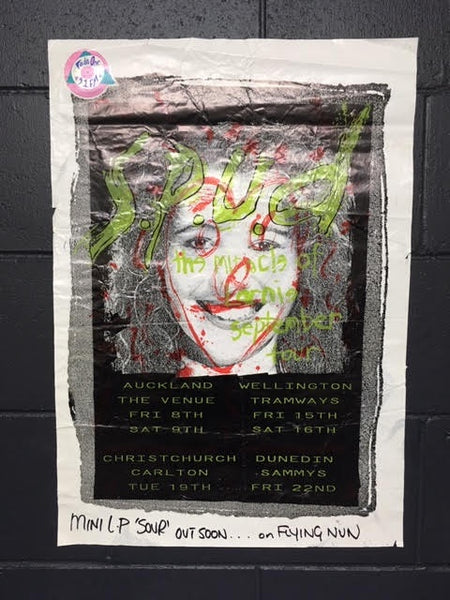 Radio One
91 FM
S.P.U.d
the miracle of
september
tour
AUCKLAND
THE VENUE
FRI 8TH
SAT 9TH
WELLINGTON
TRAMWAYS
FRI 15TH
SAT 16TH
CHRISTCHURCH
CARLTON
TUE 19TH
DUNEDIN
SAMMYS
FRI 22ND
MINI L.P 'SOUR' OUT SOON . . . on FLYING NUN